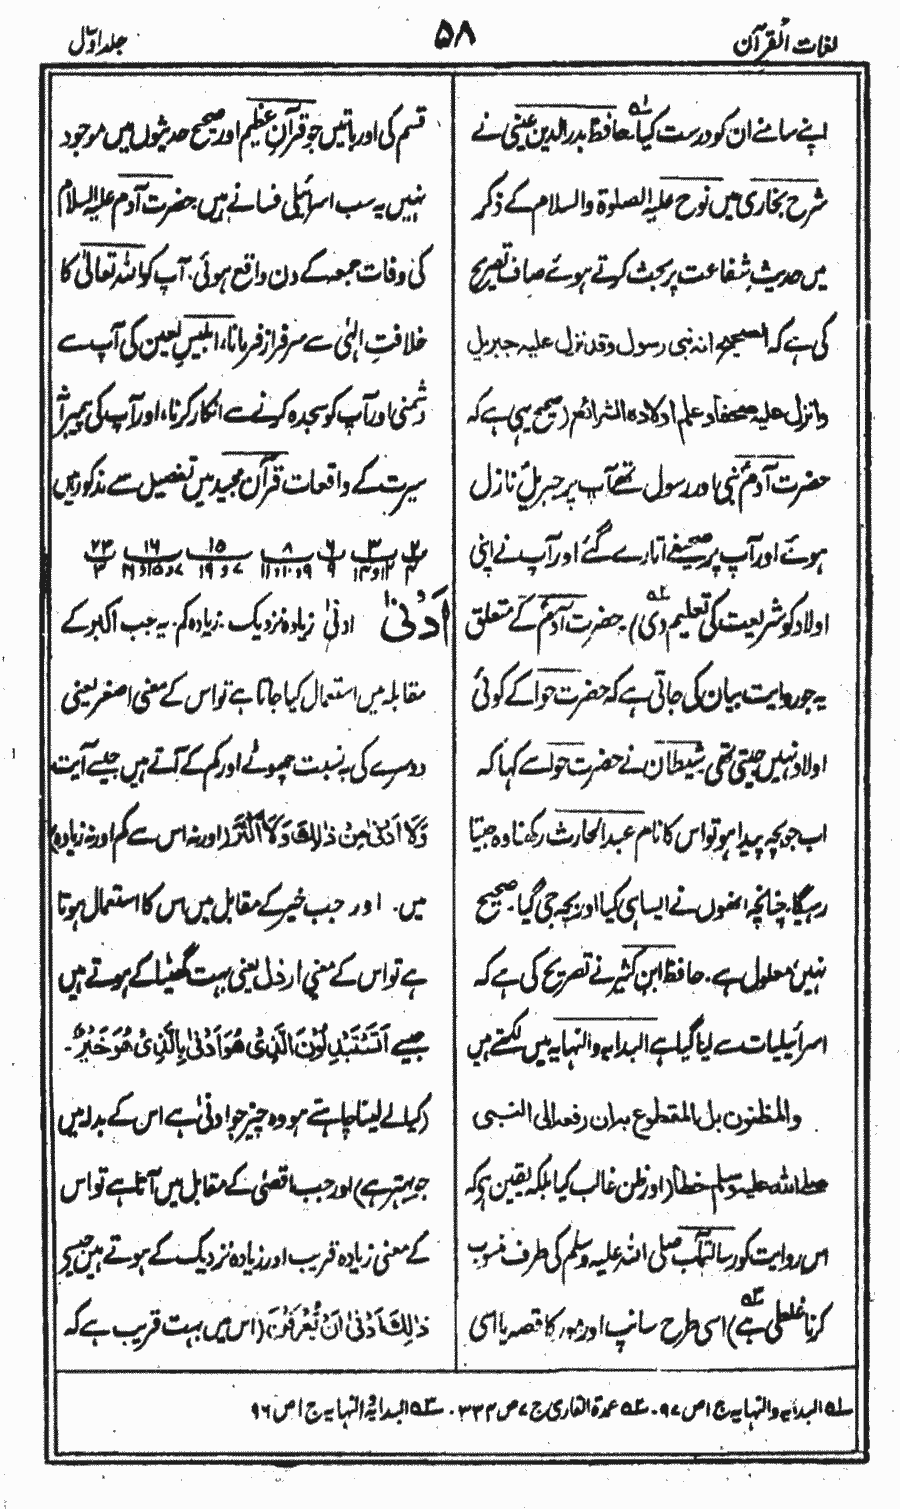 لغات القرآن
۵۸
جلد اوّل
اپنے سامنے ان کو درست کیا۔ حافظ بدرالدین عینی نے
شرح بخاری میں نوح علیہ الصلوۃ والسلام کے ذکر
میں حدیث شفاعت پر بحث کرتے ہوئے صاف تصریح
کی ہے کہ الصحیح انہ نبی رسول وقد نزل علیہ جبریل
وانزل علیہ صحفا وعلم اولادہ الشرائع (صحیح یہی ہے کہ
حضرت آدمؑ نبی اور رسول تھے آپ پر جبریلؑ نازل
ہوئے اور آپ پر صحیفے اتارے گئے اور آپ نے اپنی
اولاد کو شریعت کی تعلیم دی) حضرت آدمؑ کے متعلق
یہ جو روایت بیان کی جاتی ہے کہ حضرت حوا کے کوئی
اولاد نہیں جیتی تھی شیطان نے حضرت حوا سے کہا کہ
اب جو بچہ پیدا ہو تو اس کا نام عبدالحارث رکھنا وہ جیتا
رہیگا۔ چنانچہ انھوں نے ایسا ہی کیا اور بچہ جی گیا۔ صحیح
نہیں، معلول ہے۔ حافظ ابن کثیر نے تصریح کی ہے کہ
اسرائیلیات سے لیا گیا ہے البدایہ والنہایہ میں لکھتے ہیں
والمظنون بل المقطوع بہ ان رفعہ الی النبی
صلی اللہ علیہ وسلم خطأ (اور ظن غالب کیا بلکہ یقین ہے کہ
اس روایت کو رسالتمآب صلی اللہ علیہ وسلم کی طرف منسوب
کرنا غلطی ہے) اسی طرح سانپ اور مور کا قصہ یا اسی
قسم کی اور باتیں جو قرآنِ عظیم اور صحیح حدیثوں میں موجود
نہیں یہ سب اسرائیلی فسانے ہیں۔ حضرت آدم علیہ السلام
کی وفات جمعہ کے دن واقع ہوئی۔ آپ کو اللہ تعالیٰ کا
خلافتِ الٰہی سے سرفراز فرمانا، ابلیسِ لعین کی آپ سے
دشمنی اور آپ کو سجدہ کرنے سے انکار کرنا، اور آپ کی پیمبرانہ
سیرت کے واقعات قرآن مجید میں تفصیل سے مذکور ہیں
۲ ۳ ۶ ۸ ۱۵ ۱۶ ۲۳
۴ ۱۲و۱۴ ۹ ۹و۱۰و۱۱ ۷ و ۱۹ ۷و۱۵و۱۶ ۳
اَدْنیٰ ادنیٰ زیادہ نزدیک۔ زیادہ کم۔ یہ جب اکبر کے
مقابلہ میں استعمال کیا جاتا ہے تو اس کے معنی اصغر یعنی
دوسرے کی بہ نسبت چھوٹے اور کم کے آتے ہیں جیسے آیت
وَلَا اَدْنٰى مِنْ ذٰلِكَ وَلَا اَكْثَرَ (اور نہ اس سے کم اور نہ زیادہ)
میں۔ اور جب خیر کے مقابل میں اس کا استعمال ہوتا
ہے تو اس کے معنی ارذل یعنی بہت گھٹیا کے ہوتے ہیں
جیسے اَتَسْتَبْدِلُوْنَ الَّذِیْ هُوَ اَدْنٰى بِالَّذِیْ هُوَ خَيْرٌ۔
(کیا لے لینا چاہتے ہو وہ چیز جو ادنیٰ ہے اس کے بدلہ میں
جو بہتر ہے) اور جب اقصیٰ کے مقابل میں آتا ہے تو اس
کے معنی زیادہ قریب اور زیادہ نزدیک کے ہوتے ہیں جیسے
ذٰلِكَ اَدْنٰى اَنْ يُّعْرَفْنَ (اس میں بہت قریب ہے کہ
۱؎ البدایہ والنہایہ ج ۱ ص ۹۷۔ ۲؎ عمدۃ القاری ج ۷ ص ۳۳۴۔ ۳؎ البدایۃ النہایہ ج ۱ ص ۹۶